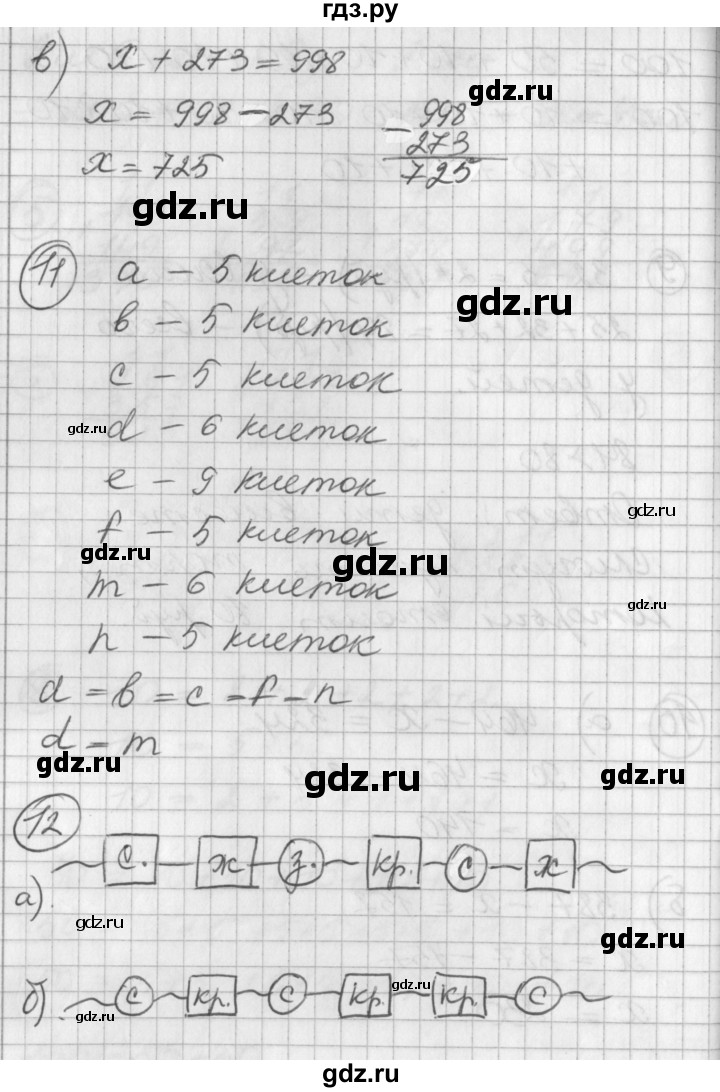 гдз.ру
в) x + 273 = 998
x = 998 - 273
998
- 273
725
x = 725
gdz.ru
gdz.ru
11 a - 5 клеток
gdz.ru
в - 5 клеток
c - 5 клеток
gdz.ru
d - 6 клеток
e - 9 клеток
gdz.ru
f - 5 клеток
gdz.ru
gdz.ru
m - 6 клеток
gdz.ru
n - 5 клеток
a = в = c = f = n
d = m
gdz.ru
gdz.ru
gdz.ru
12
а) с. ж з. кр. с ж
gdz.ru
gdz.ru
б) с кр. с кр. кр. с
gdz.ru
gdz.ru
gdz.ru